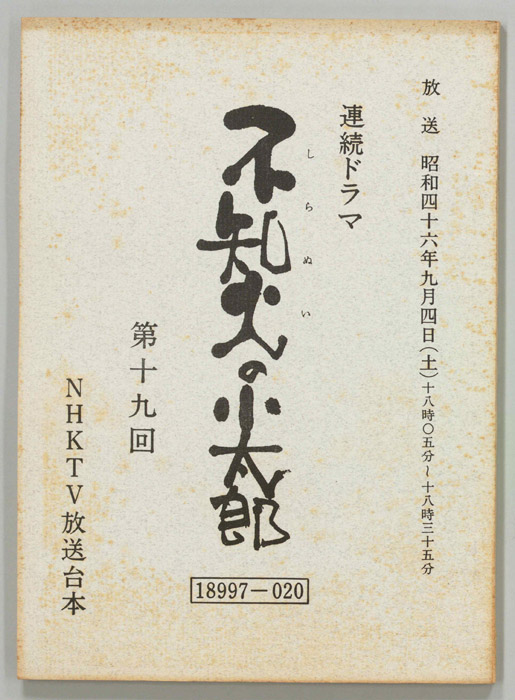 放送 昭和四十六年九月四日(土)十八時〇五分~十八時三十五分
連続ドラマ
しらぬい
不知火の小太郎
第十九回
NHKTV放送台本
18997-020